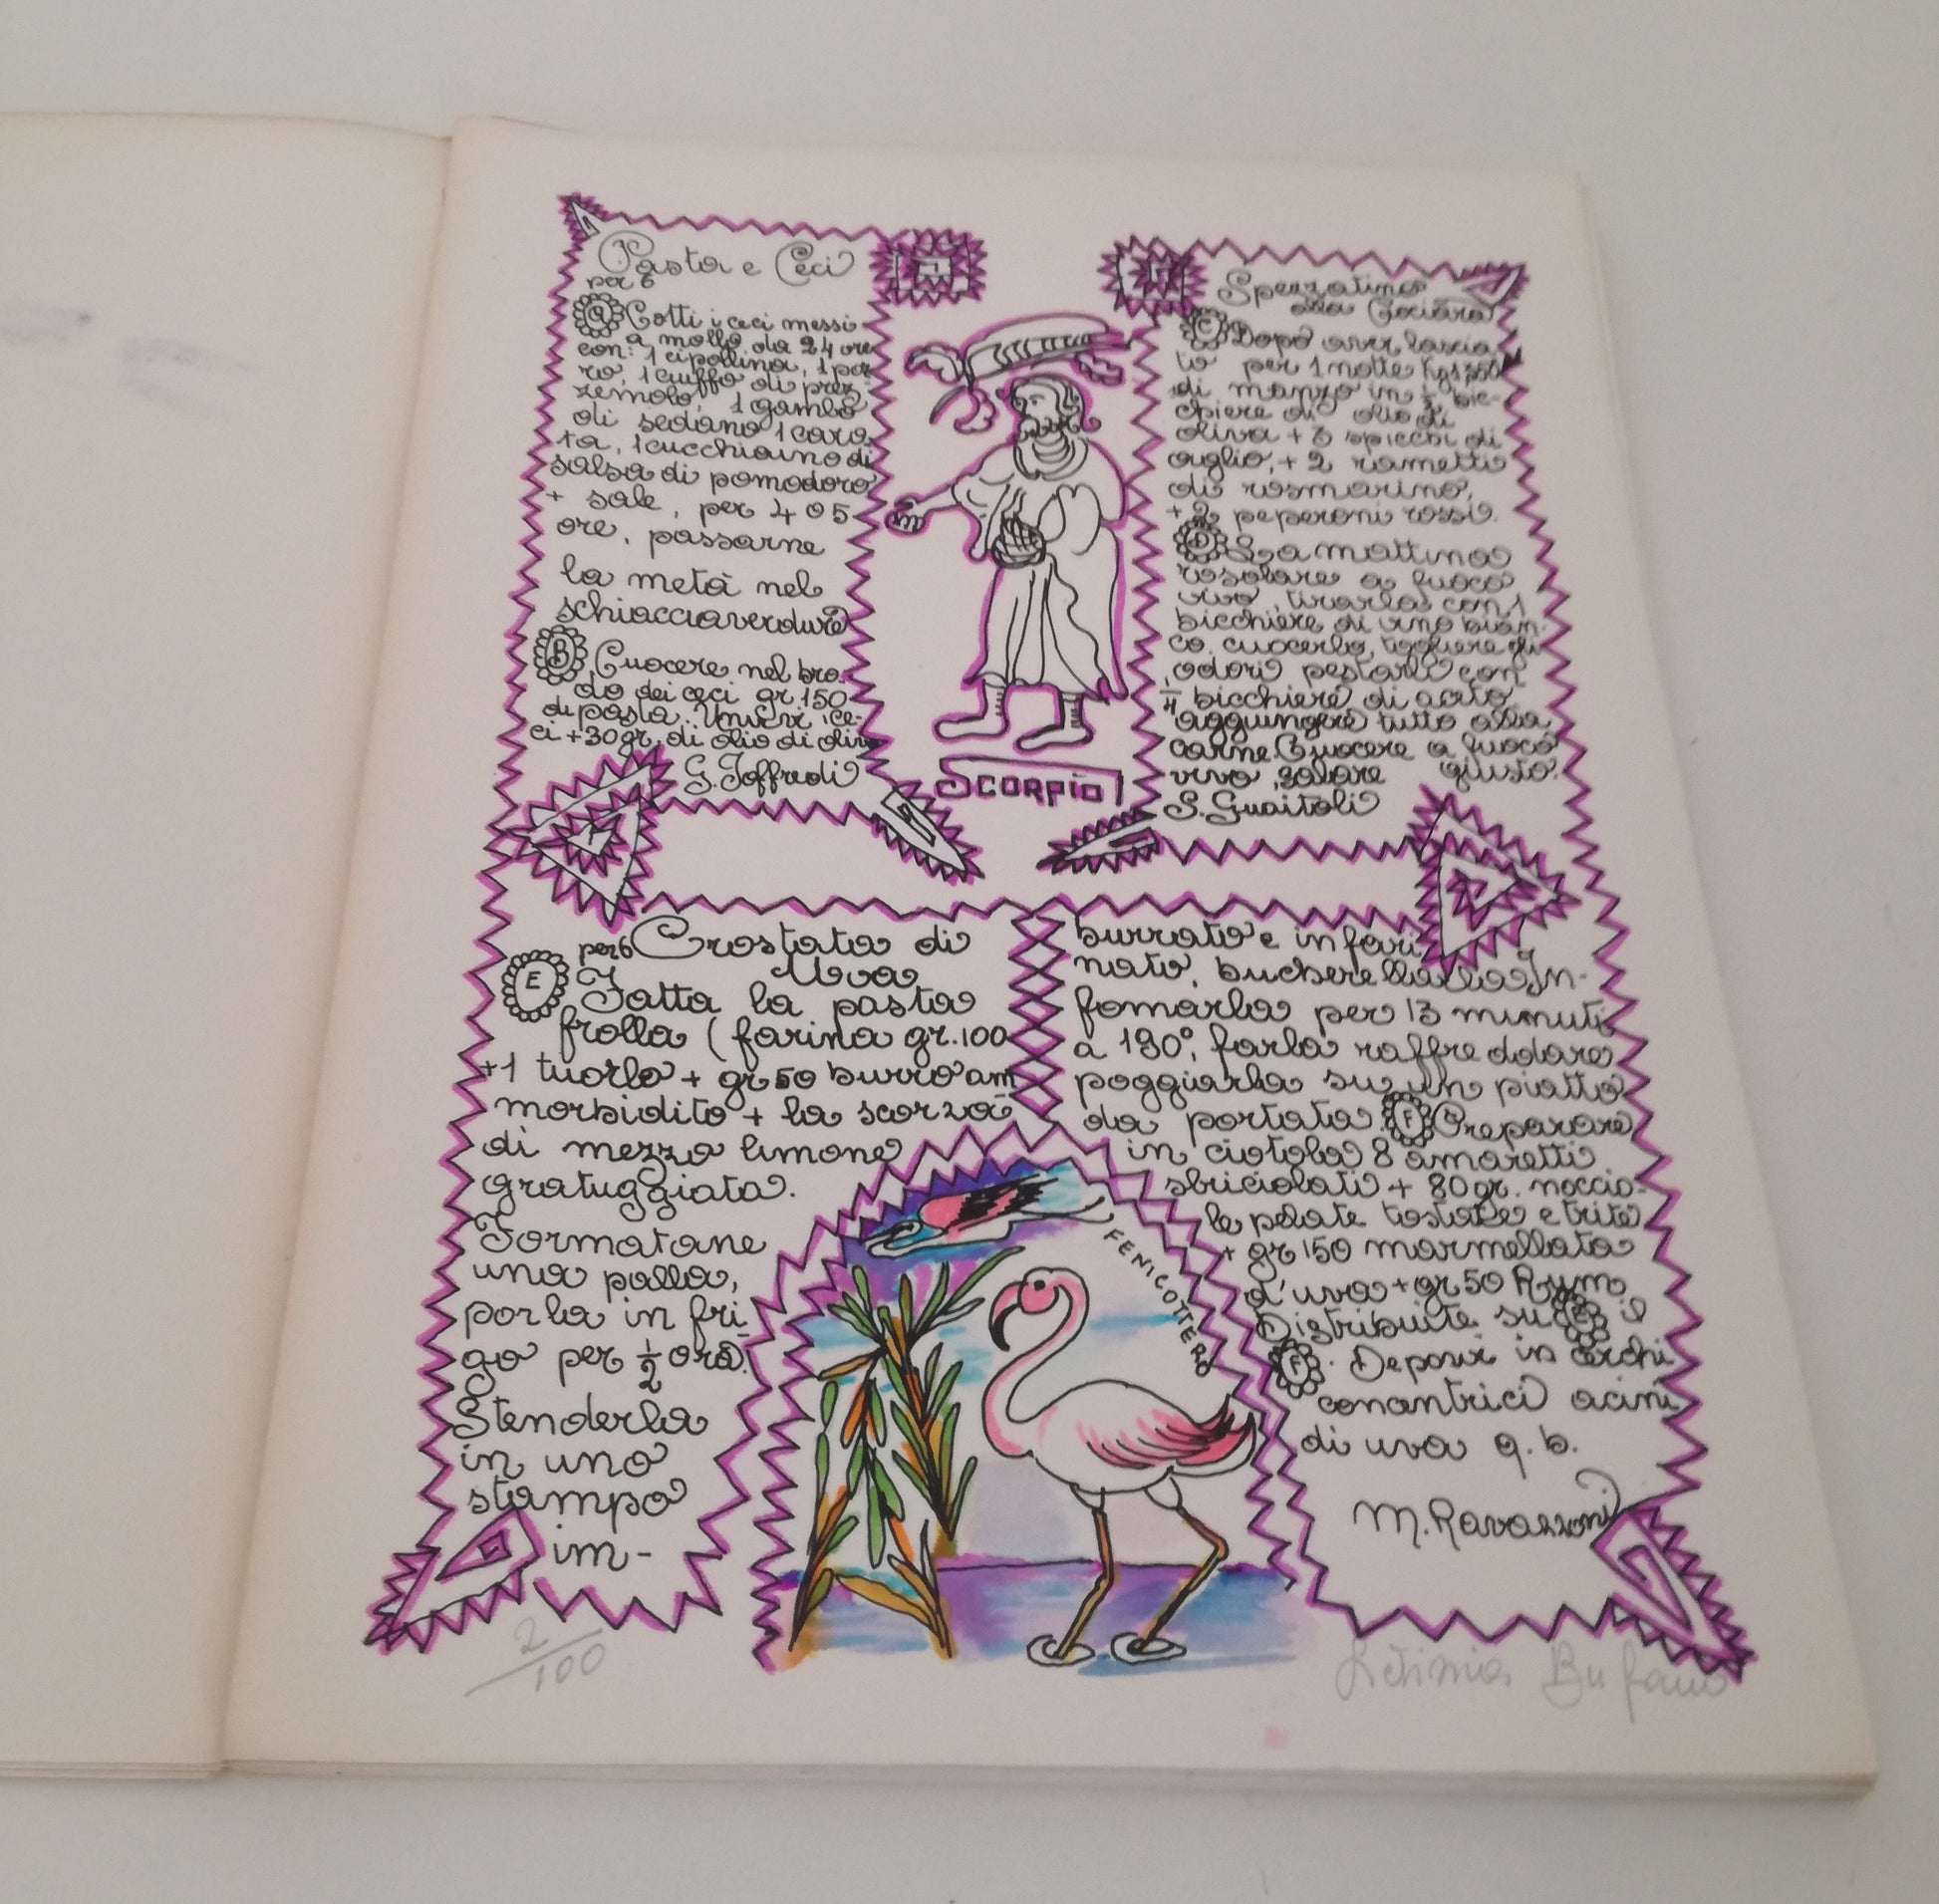 Pasta e Ceci
per 6
A Cotti i ceci messi
a mollo da 24 ore
con: 1 cipollina, 1 po
ro, 1 ciuffo di prez-
zemolo, 1 gambo
di sedano 1 caro
ta, 1 cucchiaino di
salsa di pomodoro
+ sale, per 4 o 5
ore, passarne
la metà nel
schiacciaverdure
B Cuocere nel bro-
do dei ceci gr 150
di pasta. Unirvi i ce-
ci + 30 gr. di olio di oliva
G. Joffredi
SCORPIO
Spezzatino
alla Ciociara
C Dopo aver lascia
to per 1 notte
di manzo in ½ bic-
chiere di olio di
oliva + 3 spicchi di
aglio, + 2 rametti
di rosmarino,
+ 2 peperoni rossi.
D La mattina
rosolare a fuoco
vivo, tirarla con 1
bicchiere di vino bian-
co, cuocerlo, togliere gli
odori pestarli con
¼ bicchiere di aceto
aggiungere tutto alla
carne. Cuocere a fuoco
vivo, salare giusto.
S. Guaitoli
per 6 Crostata di
Uva
E Fatta la pasta
frolla (farina gr. 100
+ 1 tuorlo + gr 50 burro am
morbidito + la scorza
di mezzo limone
gratuggiata.
Formatane
una palla,
porla in fri
go per ½ ora.
Stenderla
in uno
stampo
im-
burrato e infari
nato, bucherellarla In-
fornarla per 13 minuti
a 190°, farla raffreddare
poggiarla su un piatto
da portata. F Preparare
in ciotola 8 amaretti
sbriciolati + 80 gr. noccio-
le pelate tostate e trite
+ gr 150 marmellata
d'uva + gr 50 Rum
Distribuite su E il
F. Deporvi in cerchi
concentrici acini
di uva q.b.
M. Ravazzoni
FENICOTTERO
2/100
Letizia Bufano